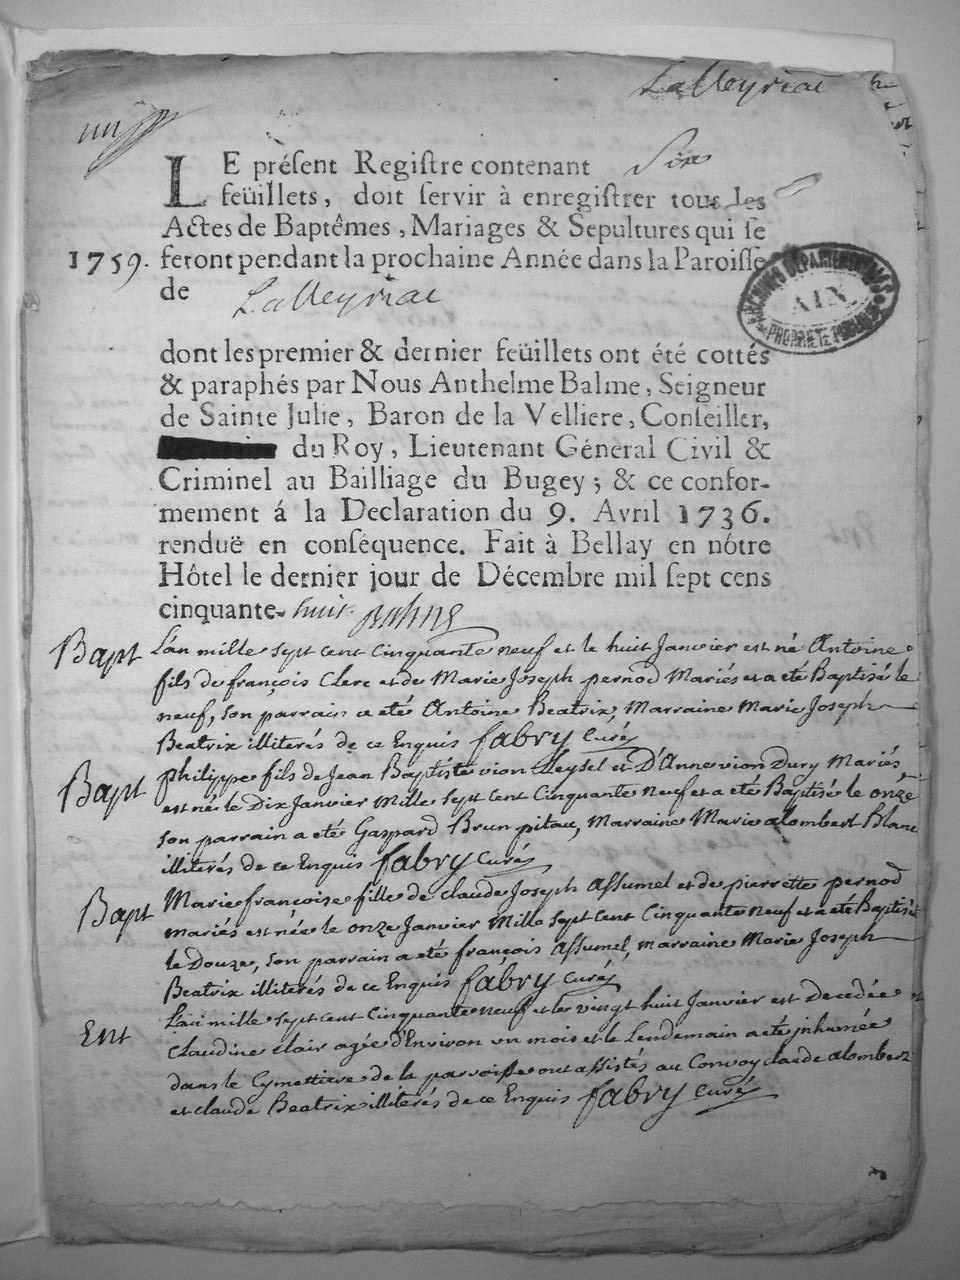 Laleyriat
LE présent Registre contenant Six
feüillets, doit servir à enregistrer tous les
Actes de Baptêmes, Mariages & Sepultures qui se
1759. feront pendant la prochaine Année dans la Paroisse
de Laleyriat
ARCHIVES DÉPARTEMENTALES
AIN
PROPRIÉTÉ PUBLIQUE
dont les premier & dernier feüillets ont été cottés
& paraphés par Nous Anthelme Balme, Seigneur
de Sainte Julie, Baron de la Velliere, Conseiller,
du Roy, Lieutenant Général Civil &
Criminel au Bailliage du Bugey; & ce confor-
mement á la Declaration du 9. Avril 1736.
renduë en conséquence. Fait à Bellay en nôtre
Hôtel le dernier jour de Décembre mil sept cens
cinquante-huit
Bapt L'an mille sept cent Cinquante neuf et le huit Janvier est né Antoine
fils de françois Clerc et de Marie Joseph pernod Mariés et a eté Baptisé le
neuf, son parrain a eté Antoine Beatrix, Marraine Marie Joseph
Beatrix illiterés de ce Enquis fabry Curé
Bapt philippe fils de Jean Baptiste vion Leysel et D'Anne vion Dury Mariés,
est né le Dix Janvier Mille sept Cent Cinquante Neuf et a eté Baptisé le onze
son parrain a eté Gaspard Brun pitau, Marraine Marie alombert Blanc
illiterés de ce Enquis fabry Curé
Bapt Marie françoise fille de claude Joseph Assumel et de pierrette pernod
mariés est née le onze Janvier Mille sept Cent Cinquante Neuf et a eté Baptisée
le Douze, son parrain a eté françois Assumel, marraine Marie Joseph
Beatrix illiterés de ce Enquis fabry Curé
Ent L'an mille sept cent Cinquante neuf et le vingt huit Janvier est Decedée
Claudine Clair agée d'Environ un mois et le Lendemain a eté inhumée
dans le Cymettiere de la parroisse ont assistés au Convoy claude alombert
et claude Beatrix illiterés de ce Enquis fabry Curé